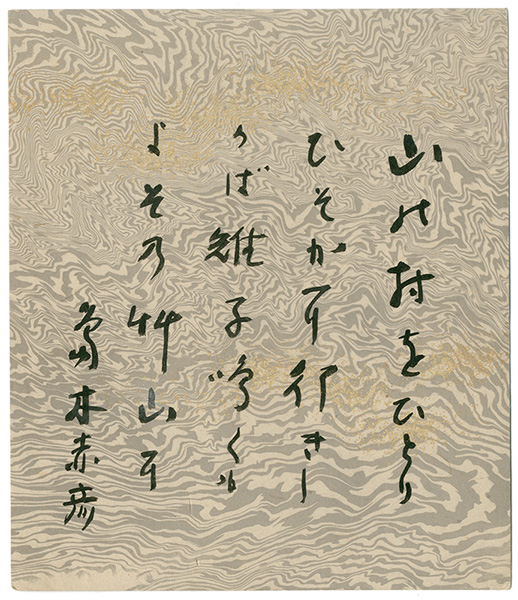 山の村をひとり
ひそかに行きし
かば雉子鳴くも
よその竹山に
島木赤彦